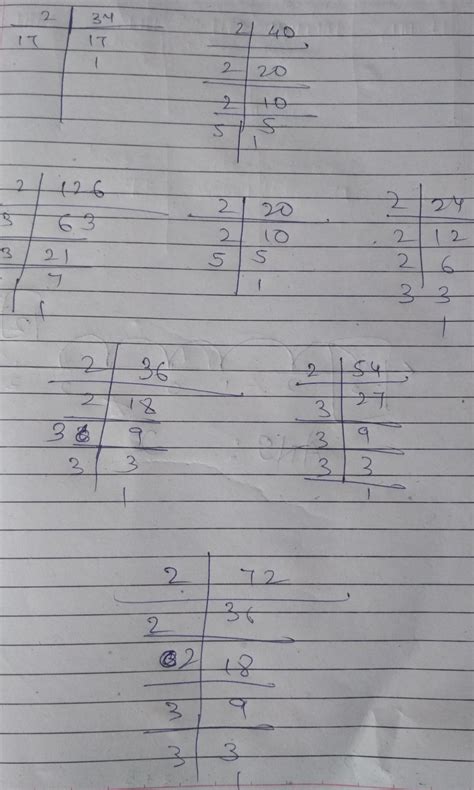 2 | 34
17 | 17
1
2 | 40
2 | 20
2 | 10
5 | 5
1
2 | 126
3 | 63
3 | 21
7
1
2 | 20
2 | 10
5 | 5
1
2 | 24
2 | 12
2 | 6
3 3
1
2 | 36
2 | 18
3 | 9
3 | 3
1
2 | 54
3 | 27
3 | 9
3 | 3
1
2 | 72
2 | 36
2 | 18
3 | 9
3 | 3
1